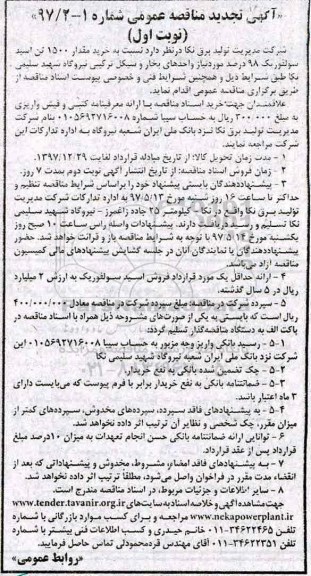 «آگهی تجدید مناقصه عمومی شماره ۱-۹۷/۲»
(نوبت اول)
شرکت مدیریت تولید برق نکا درنظر دارد نسبت به خرید مقدار ۱۵۰۰ تن اسید
سولفوریک ۹۸ درصد موردنیاز واحدهای بخار و سیکل ترکیبی نیروگاه شهید سلیمی
نکا طبق شرایط ذیل و همچنین شرایط فنی و خصوصی پیوست اسناد مناقصه از
طریق برگزاری مناقصه عمومی اقدام نماید.
علاقمندان جهت خرید اسناد مناقصه با ارائه معرفینامه کتبی و فیش واریزی
به مبلغ ۳۰۰/۰۰۰ ریال به حساب سیبا شماره ۰۱۰۵۶۹۲۷۱۶۰۰۸ بنام شرکت
مدیریت تولید برق نکا نزد بانک ملی ایران شعبه نیروگاه به اداره تدارکات این
شرکت مراجعه نمایند.
۱ - مدت زمان تحویل کالا: از تاریخ مبادله قرارداد لغایت ۱۳۹۷/۱۲/۲۹
۲ - زمان فروش اسناد مناقصه: از تاریخ انتشار آگهی نوبت دوم بمدت ۷ روز.
۳ - پیشنهاددهندگان بایستی پیشنهاد خود را براساس شرایط مناقصه تنظیم و
حداکثر تا ساعت ۱۶ روز شنبه مورخ ۹۷/۵/۱۳ به اداره تدارکات شرکت مدیریت
تولید برق نکا واقع در نکا - کیلومتر ۲۵ جاده زاغمرز - نیروگاه شهید سلیمی
نکا تسلیم و رسید دریافت دارند. پیشنهادات واصله راس ساعت ۱۰ صبح روز
یکشنبه مورخ ۹۷/۵/۱۴ با توجه به شرایط مناقصه باز و قرائت خواهد شد. حضور
پیشنهاددهندگان یا نمایندگان آنان در جلسه گشایش پیشنهادهای مالی کمیسیون
مناقصه آزاد می‌باشد.
۴ - ارائه حداقل یک مورد قرارداد فروش اسید سولفوریک به ارزش ۲ میلیارد
ریال در ۵ سال گذشته.
۵ - سپرده شرکت در مناقصه: مبلغ سپرده شرکت در مناقصه معادل ۴۰۰/۰۰۰/۰۰۰
ریال است که بایستی به یکی از صورت‌های مشروحه ذیل همراه با اسناد مناقصه در
پاکت الف به دستگاه مناقصه‌گذار تسلیم گردد:
۱-۵ - رسید بانکی واریز وجه مزبور به حساب سیبا ۰۱۰۵۶۹۲۷۱۶۰۰۸ این
شرکت نزد بانک ملی ایران شعبه نیروگاه شهید سلیمی نکا
۲-۵ - چک تضمین شده بانکی به نفع خریدار.
۳-۵ - ضمانتنامه بانکی به نفع خریدار برابر با فرم پیوست که می‌بایست دارای
۳ ماه اعتبار باشد.
۴-۵ - به پیشنهادهای فاقد سپرده، سپرده‌های مخدوش، سپرده‌های کمتر از
میزان مقرر، چک شخصی و نظایر آن ترتیب اثر داده نخواهد شد.
۶ - توانایی ارائه ضمانتنامه بانکی حسن انجام تعهدات به میزان ۱۰درصد مبلغ
قرارداد پس از عقد قرارداد.
۷ - به پیشنهادهای فاقد امضاء، مشروط، مخدوش و پیشنهاداتی که بعد از
انقضاء مدت مقرر در فراخوان واصل می‌شود، مطلقاً ترتیب اثر داده نخواهد شد.
۸ - سایر اطلاعات و جزئیات مربوط، در اسناد مناقصه مندرج است.
جهت مشاهده آگهی و خلاصه اسناد به سایت‌های www.tender.tavanir.org.ir
و www.nekapowerplant.ir مراجعه و برای کسب موارد بازرگانی با شماره
تلفن ۳۴۶۲۲۴۶۵-۰۱۱ خانم حیدری و کسب اطلاعات فنی بیشتر با شماره
تلفن ۳۴۶۲۲۳۵۱-۰۱۱ آقای مهندس قره‌محمودلی تماس حاصل فرمایید.
«روابط عمومی»